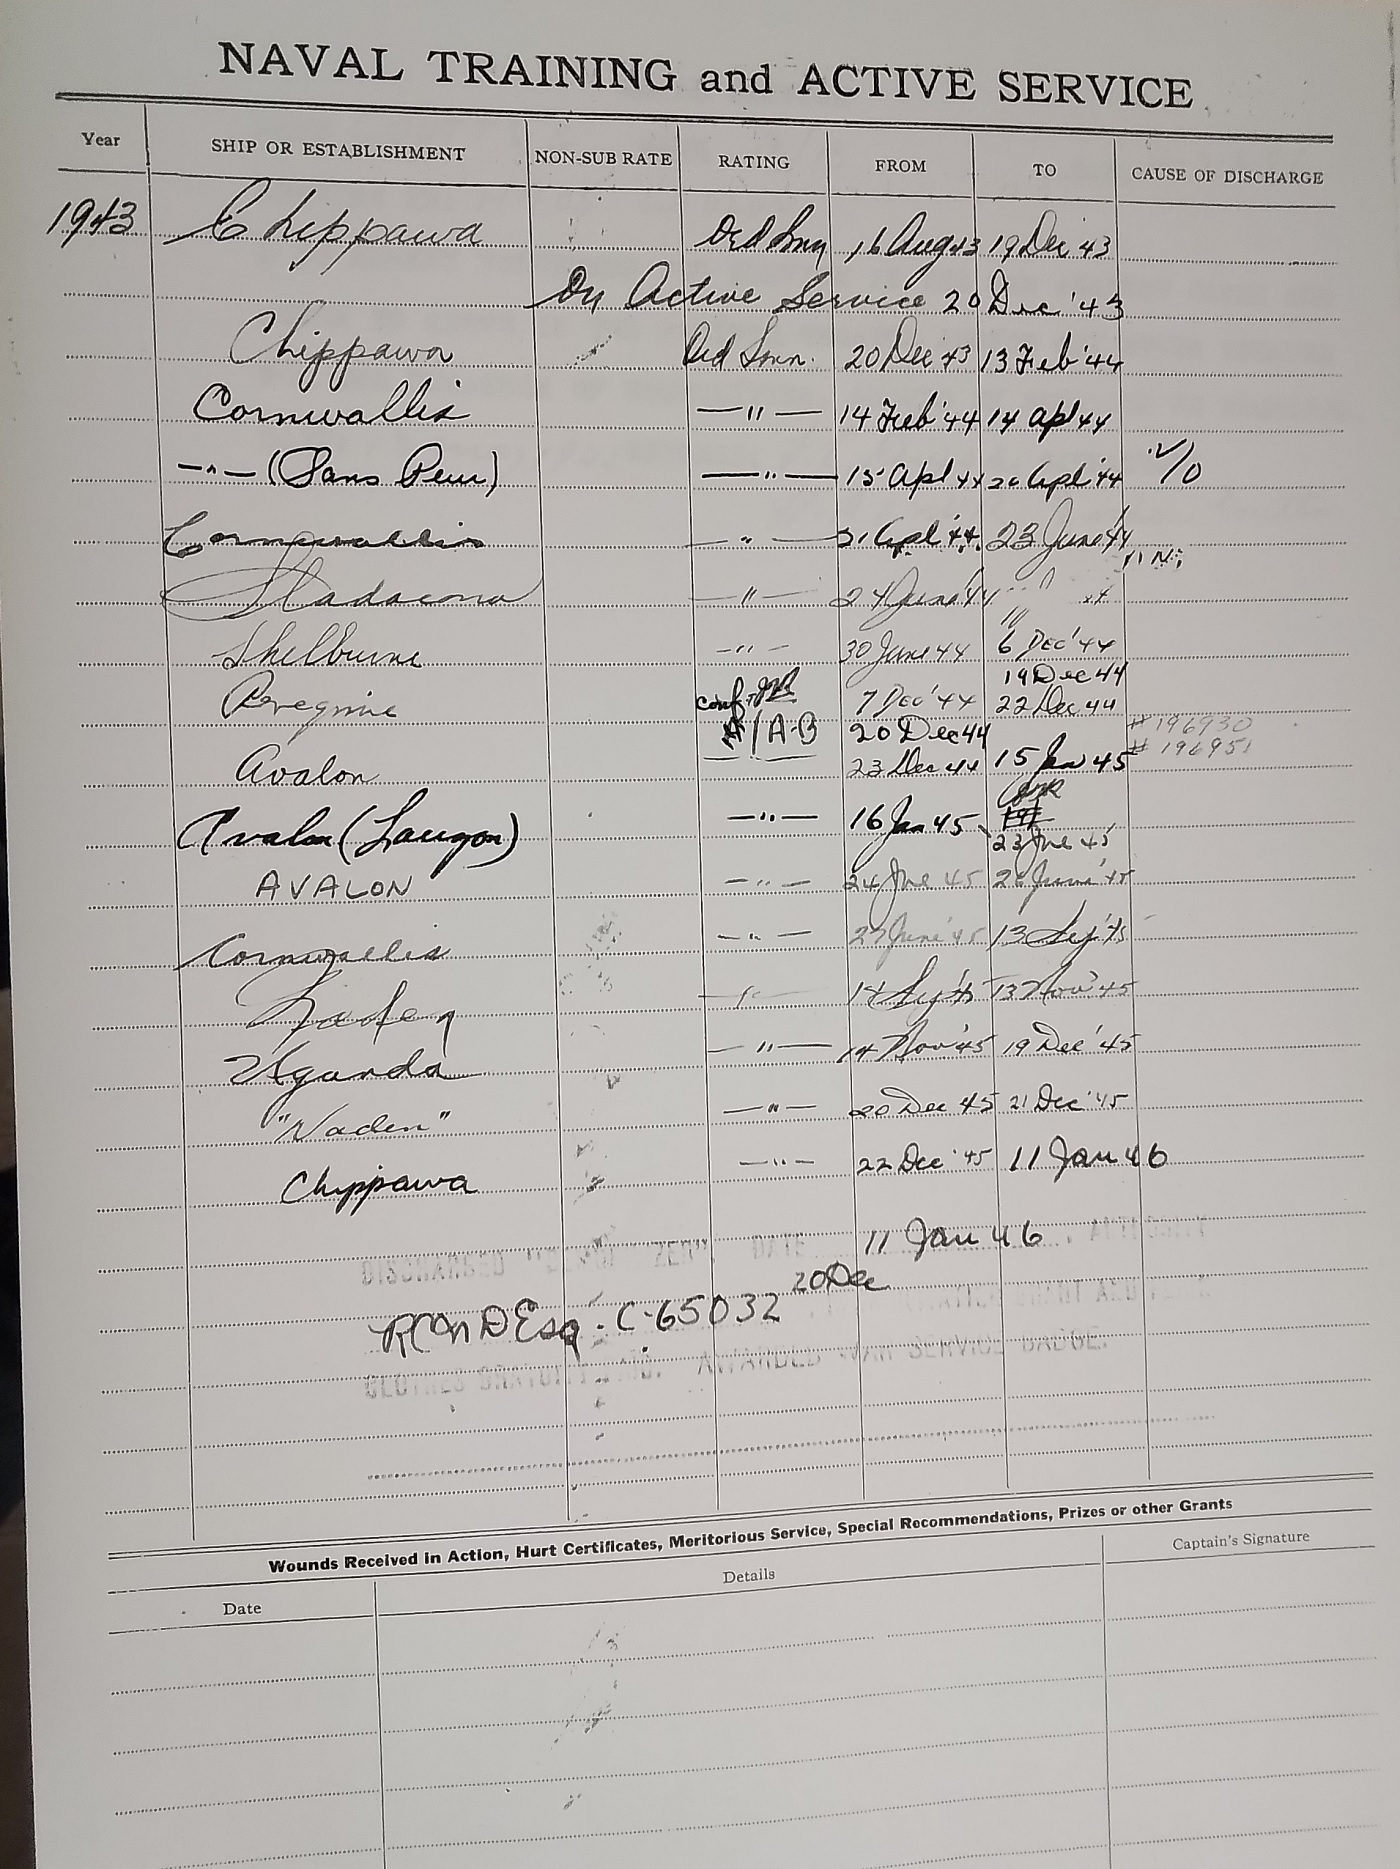 NAVAL TRAINING and ACTIVE SERVICE
Year SHIP OR ESTABLISHMENT NON-SUB RATE RATING FROM TO CAUSE OF DISCHARGE
1943 Chippawa Ord Smn 16 Aug 43 19 Dec 43
On Active Service 20 Dec '43
Chippawa Ord Smn. 20 Dec '43 13 Feb '44
Cornwallis —"— 14 Feb '44 14 Apl 44
—"— (Sans Peur) —"— 15 Apl 44 20 Apl '44
Cornwallis —"— 21 Apl '44. 23 June '44
Stadacona —"— 24 June '44
Shelburne —"— 30 June 44 6 Dec '44
19 Dec 44
Peregrine conf. 7 Dec '44 22 Dec 44
A/A-B 20 Dec 44 # 196930
Avalon 23 Dec 44 15 Jan 45 # 196951
Avalon (Lauzon) —"— 16 Jan 45
23 Jne 45
AVALON —"— 24 Jne 45 26 June '45
Cornwallis —"— 27 June '45 13 Sep '45
Naden —"— 14 Sep '45 13 Nov '45
Uganda —"— 14 Nov '45 19 Dec '45
"Naden" —"— 20 Dec 45 21 Dec '45
Chippawa —"— 22 Dec '45 11 Jan 46
DISCHARGED DATE 11 Jan 46
20 Dec
RCN D Esq. C-65032
CLOTHES GRATUITY AWARDED WAR SERVICE BADGE.
Wounds Received in Action, Hurt Certificates, Meritorious Service, Special Recommendations, Prizes or other Grants
Date Details Captain's Signature